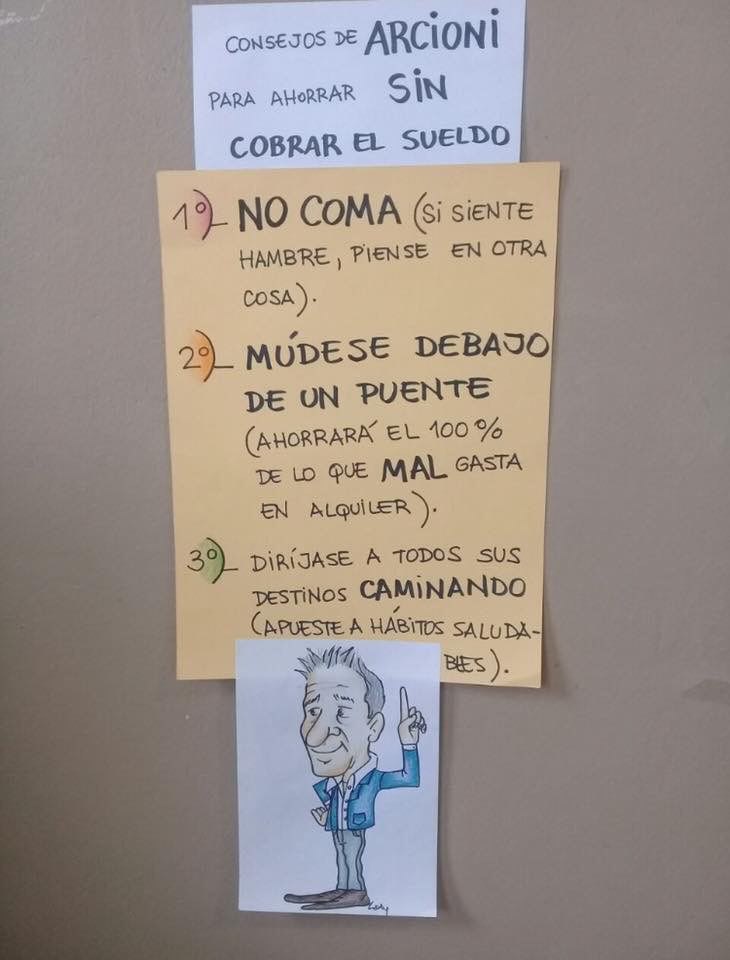 CONSEJOS DE ARCIONI
PARA AHORRAR SIN
COBRAR EL SUELDO
1º)_ NO COMA (SI SIENTE
HAMBRE, PIENSE EN OTRA
COSA).
2º)_ MÚDESE DEBAJO
DE UN PUENTE
(AHORRARÁ EL 100%
DE LO QUE MAL GASTA
EN ALQUILER).
3º)_ DIRÍJASE A TODOS SUS
DESTINOS CAMINANDO
(APUESTE A HÁBITOS SALUDA-
BLES).